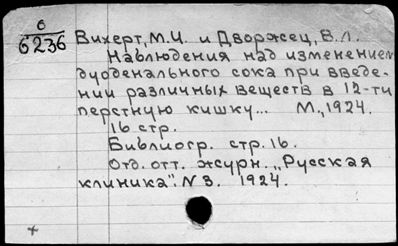 6
6236
Вихерт, М.И. и Дворжец, В.Л.
Наблюдения над изменением
дуоденального сока при введе-
нии различных веществ в 12-ти
перстную кишку... М., 1924.
16 стр.
Библиогр. стр. 16.
Отд. отт. журн. „Русская
клиника". N 3. 1924.
+